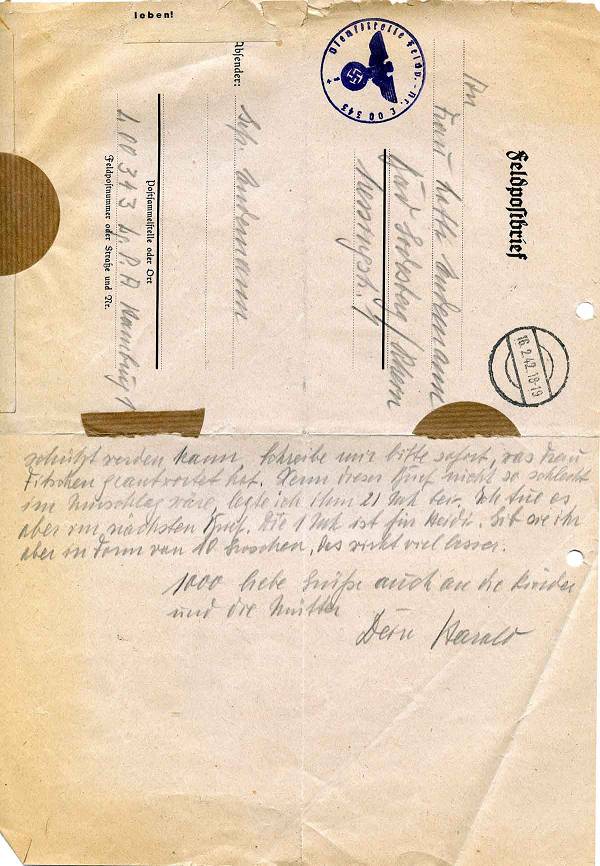 leben!
Feldpostbrief
An
Frau
Bad
16.2.42.18-19
Dienststelle Feldp.-Nr. L 00 343
Absender:
L 00343 L.P.A. Hamburg 1
Postsammelstelle oder Ort
Feldpostnummer oder Straße und Nr.
werden kann. Schreibe mir bitte sofort, was Frau
geantwortet hat. Wenn dieser Brief nicht so schlecht
im Umschlag wäre, legte ich ihm 21 Mk bei. Ich tue es
aber im nächsten Brief. Die 1 Mk ist für Heidi. Gib sie ihr
aber in Form von 10 Groschen, das wirkt viel besser.
1000 liebe Grüße auch an die Kinder
und die Mutter
Dein Harald